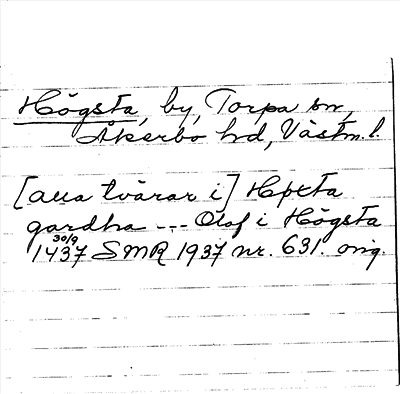 Högsta, by, Torpa sn,
Åkerbo hd, Västm. l.
[alla tvärar i] Høxta
gardha --- Olof i Högsta
30/9 1437 SMR 1937 nr. 631. orig.